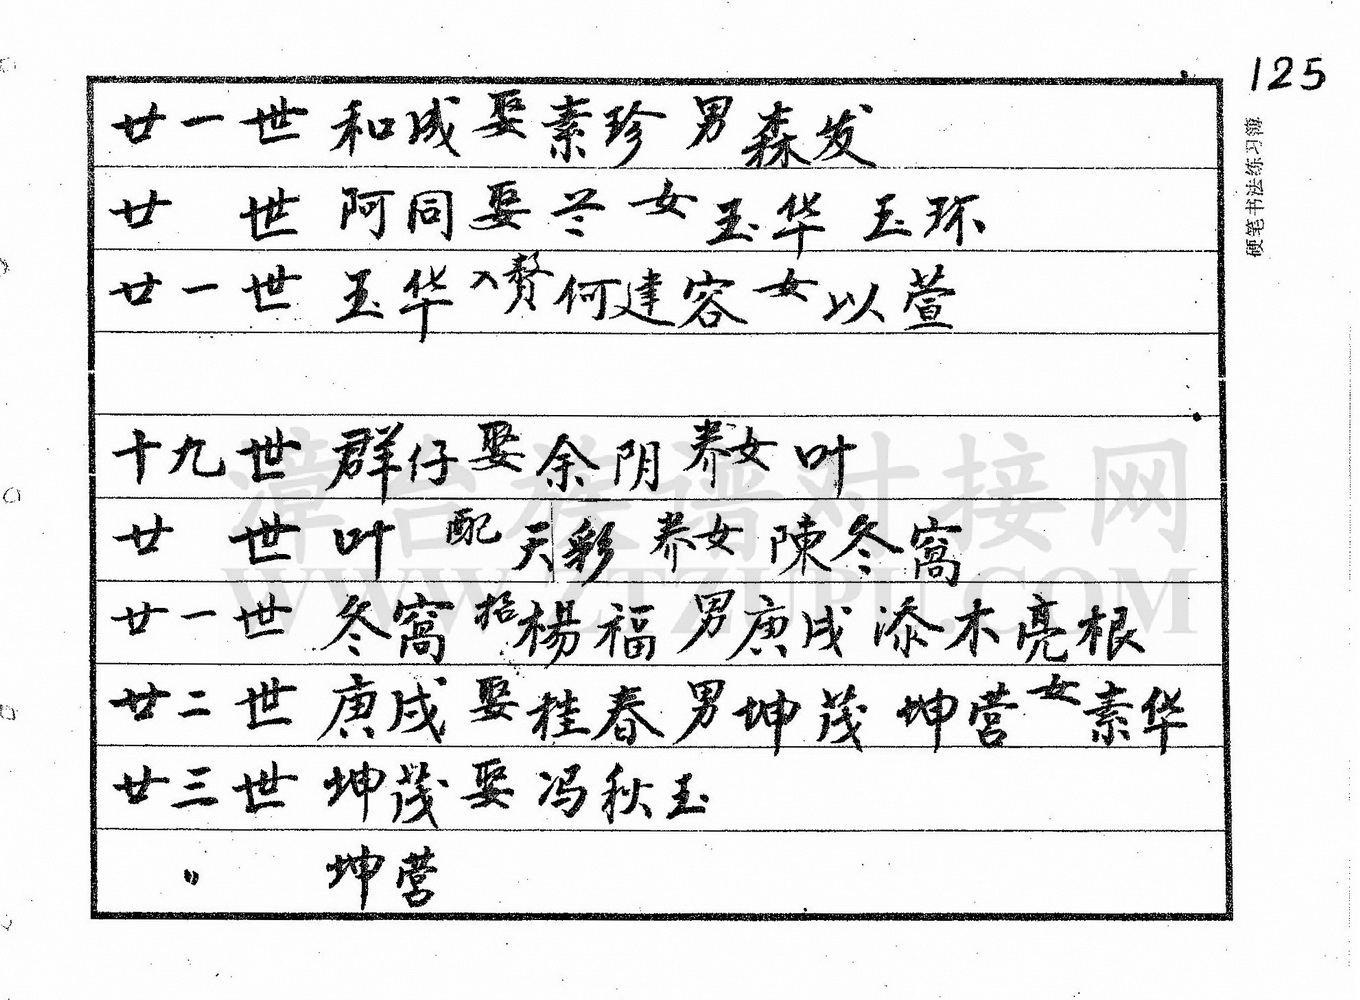 125
硬笔书法练习簿
廿一世 和成 娶 素珍 男 森发
廿 世 阿同 娶 兰 女 玉华 玉环
廿一世 玉华 入赘 何建容 女 以萱
十九世 群仔 娶 余阴 养女 叶
廿 世 叶 配 天彩 养女 陳冬窩
廿一世 冬窩 招 楊福 男 庚戌 添木 亮根
廿二世 庚戌 娶 桂春 男 坤茂 坤营 女 素华
廿三世 坤茂 娶 冯秋玉
〃 坤营
漳台族谱对接网
WWW.ZTZUPU.COM